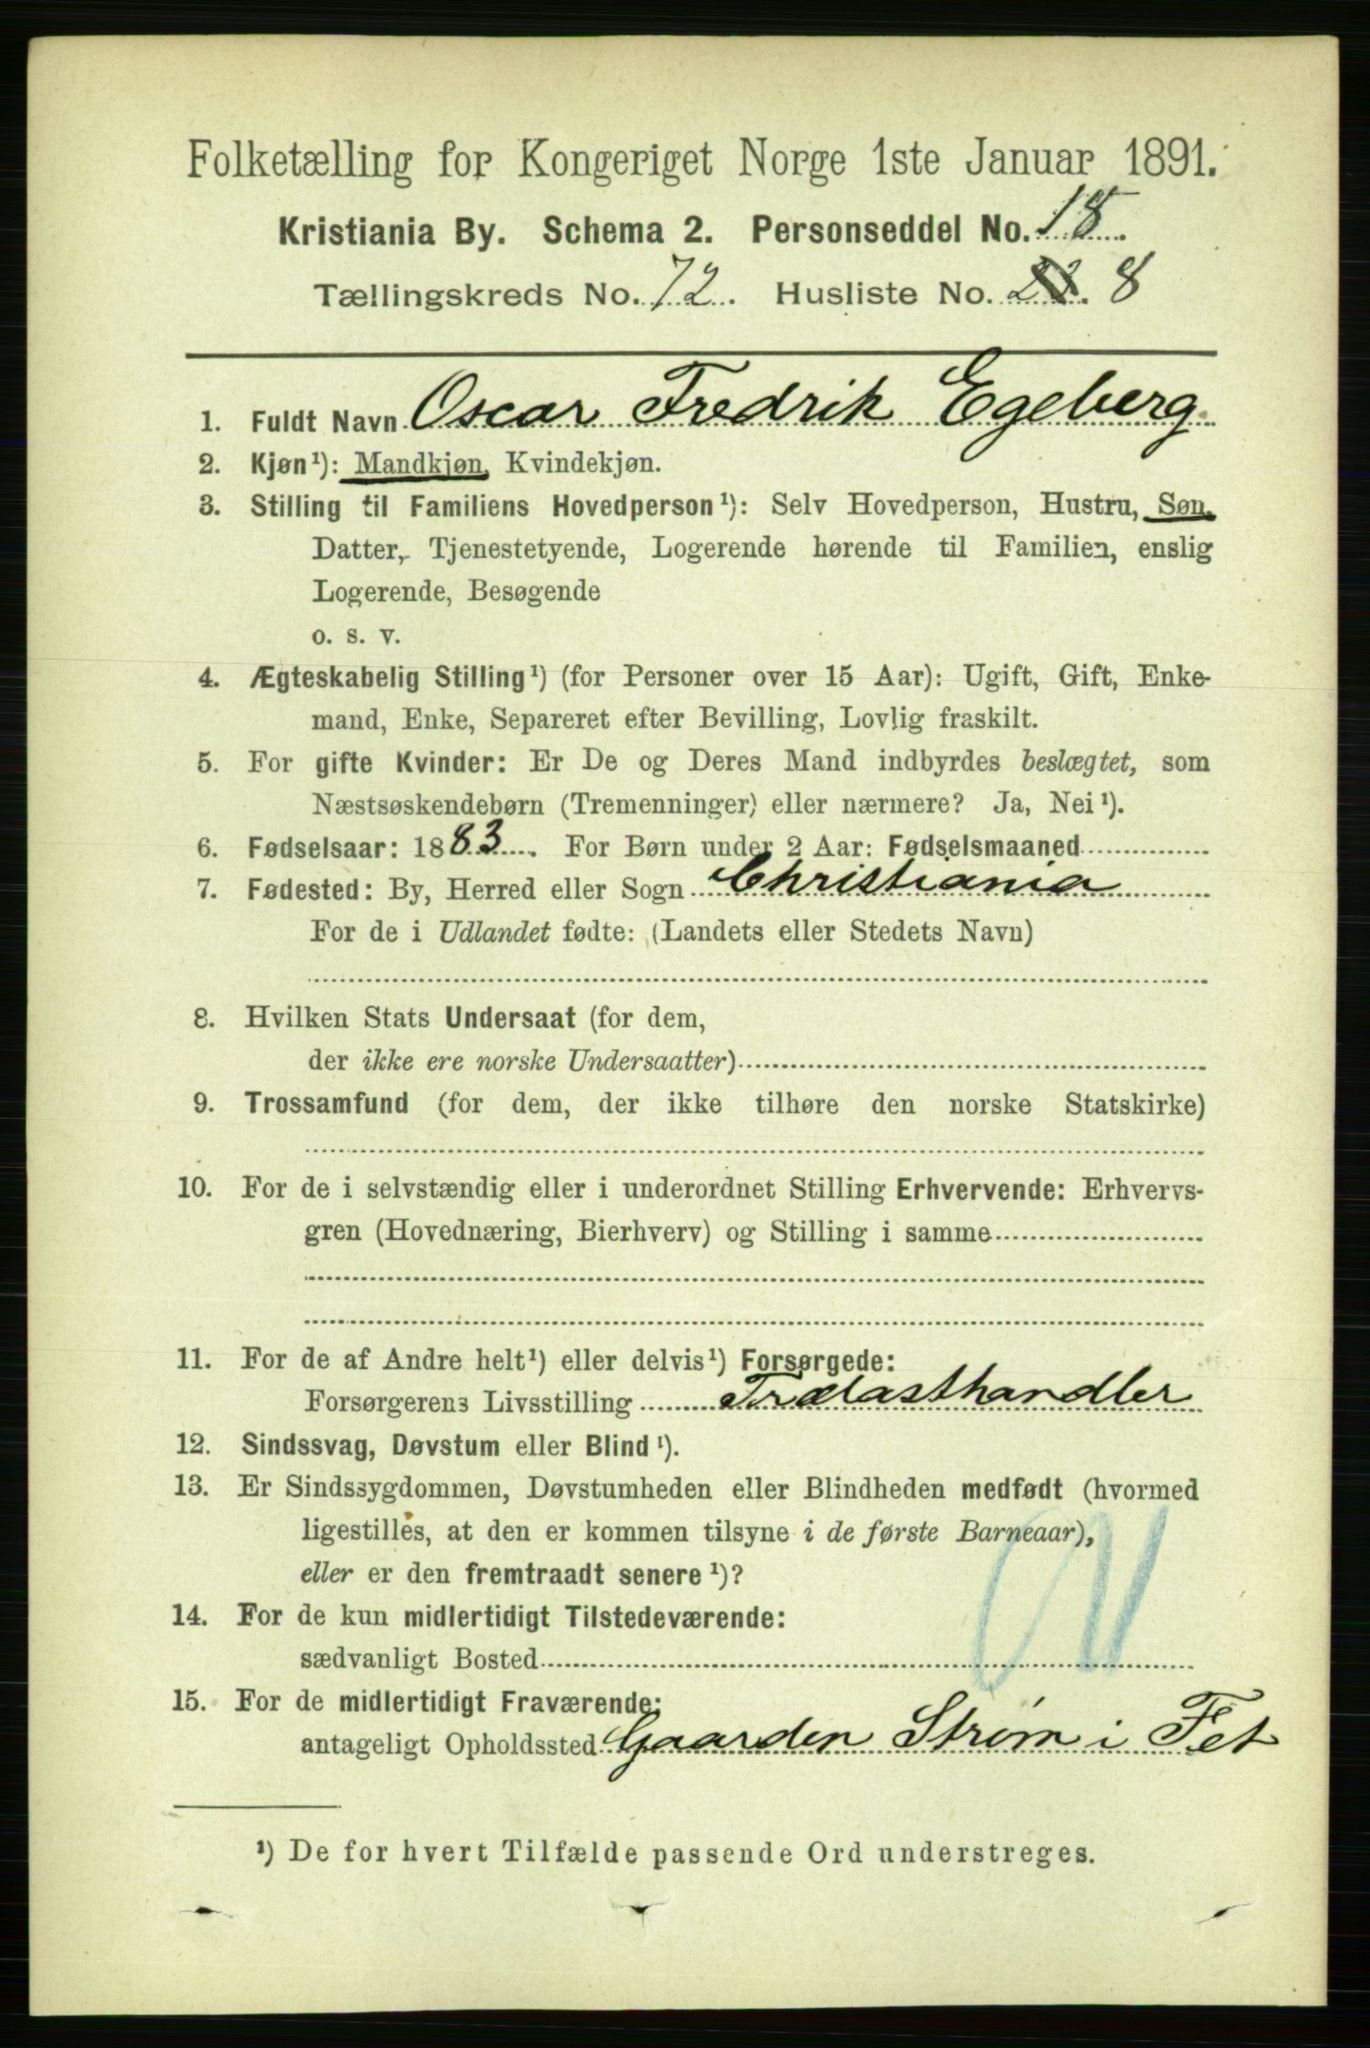 Folketælling for Kongeriget Norge 1ste Januar 1891.
Kristiania By. Schema 2. Personseddel No. 18.
Tællingskreds No. 72. Husliste No. 22. 8
1. Fuldt Navn Oscar Fredrik Egeberg
2. Kjøn¹): Mandkjøn, Kvindekjøn.
3. Stilling til Familiens Hovedperson¹): Selv Hovedperson, Hustru, Søn,
Datter, Tjenestetyende, Logerende hørende til Familien, enslig
Logerende, Besøgende
o. s. v.
4. Ægteskabelig Stilling¹) (for Personer over 15 Aar): Ugift, Gift, Enke-
mand, Enke, Separeret efter Bevilling, Lovlig fraskilt.
5. For gifte Kvinder: Er De og Deres Mand indbyrdes beslægtet, som
Næstsøskendebørn (Tremenninger) eller nærmere? Ja, Nei¹).
6. Fødselsaar: 1883. For Børn under 2 Aar: Fødselsmaaned
7. Fødested: By, Herred eller Sogn Christiania
For de i Udlandet fødte: (Landets eller Stedets Navn)
8. Hvilken Stats Undersaat (for dem,
der ikke ere norske Undersaatter)
9. Trossamfund (for dem, der ikke tilhøre den norske Statskirke)
10. For de i selvstændig eller i underordnet Stilling Erhvervende: Erhvervs-
gren (Hovednæring, Bierhverv) og Stilling i samme
11. For de af Andre helt¹) eller delvis¹) Forsørgede:
Forsørgerens Livsstilling Trælasthandler
12. Sindssvag, Døvstum eller Blind¹).
13. Er Sindssygdommen, Døvstumheden eller Blindheden medfødt (hvormed
ligestilles, at den er kommen tilsyne i de første Barneaar),
eller er den fremtraadt senere¹)?
14. For de kun midlertidigt Tilstedeværende:
sædvanligt Bosted
15. For de midlertidigt Fraværende:
antageligt Opholdssted Gaarden Strøm i Fet
¹) De for hvert Tilfælde passende Ord understreges.